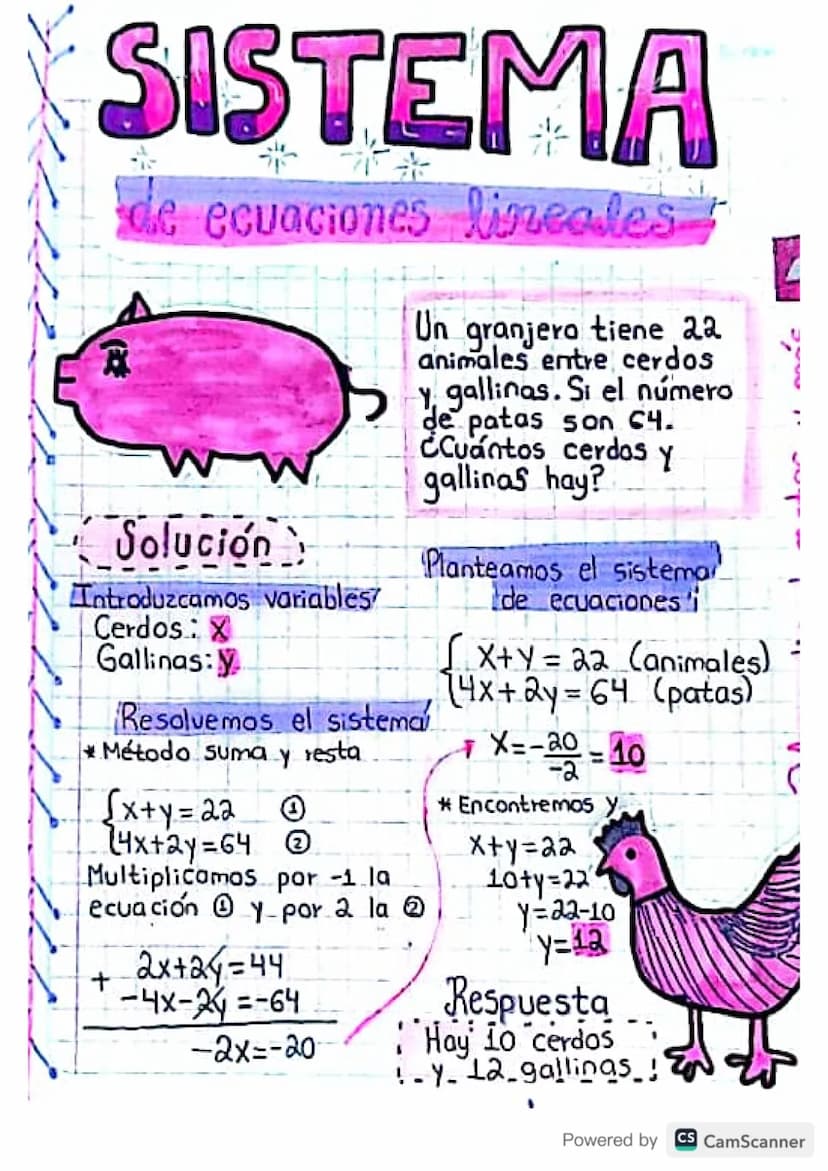 SISTEMA
de ecuaciones lineales
Un granjero tiene 22
animales entre cerdos
y gallinas. Si el número
de patas son 64.
¿Cuántos cerdos y
gallinas hay?
Solución
Introduzcamos variables
Cerdos: x
Gallinas: y
Planteamos el sistema
de ecuaciones
x+y=22 (animales)
4x+2y=64 (patas)
Resolvemos el sistema
* Método suma y resta
x+y=22 ①
4x+2y=64 ②
Multiplicamos por -1 la
ecuación ① y por 2 la ②
+ 2x+2y=44
-4x-2y=-64
-2x=-20
x=-20/-2=10
* Encontremos y
x+y=22
10+y=22
y=22-10
y=12
Respuesta
Hay 10 cerdos
y 12 gallinas
Powered by CS CamScanner